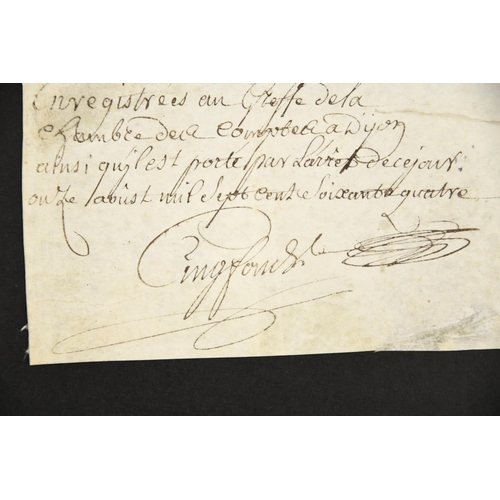 Enregistrées au Greffe de la
Chambre des Comptes a Dijon
ainsi qu'il est porté par Larrest de ce jour
onze aoust mil sept cent soixante quatre